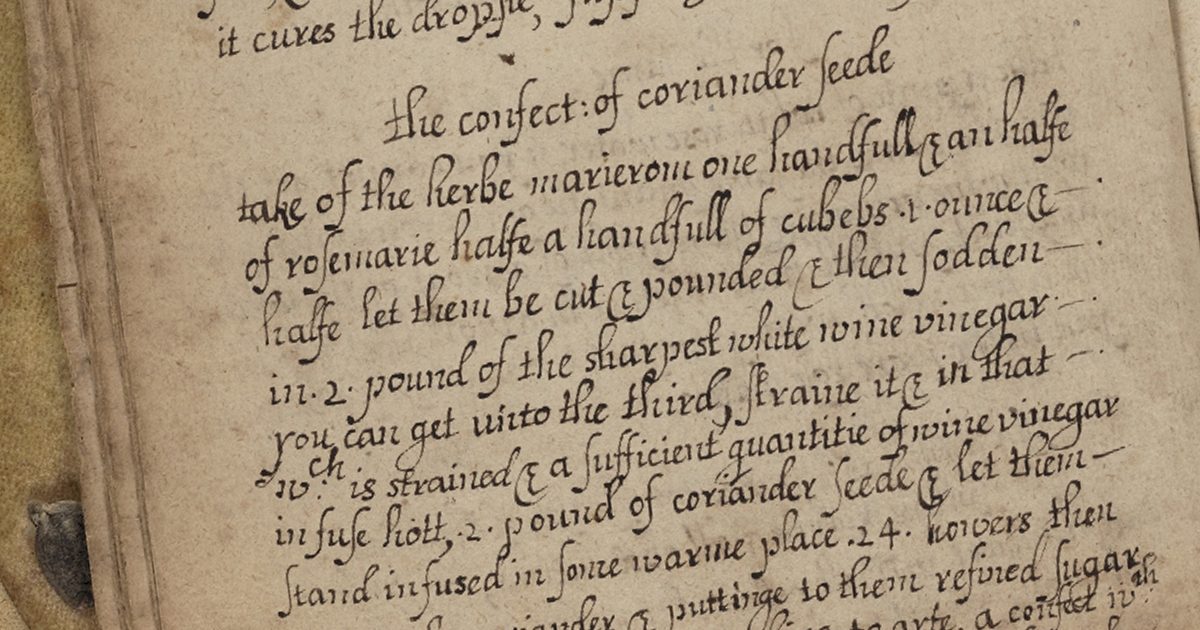 it cures the dropsie,
the confect: of coriander seede
take of the herbe marierom one handfull & an halfe
of rosemarie halfe a handfull of cubebs .1. ounce & —.
halfe let them be cut & pounded & then sodden —.
in .2. pound of the sharpest white wine vinegar —.
you can get unto the third, straine it & in that —.
wch is strained & a sufficient quantitie of wine vinegar
infuse hott, .2. pound of coriander seede & let them —
stand infused in some warme place .24. howers then
& puttinge to them refined sugar
to arte, a confect wth